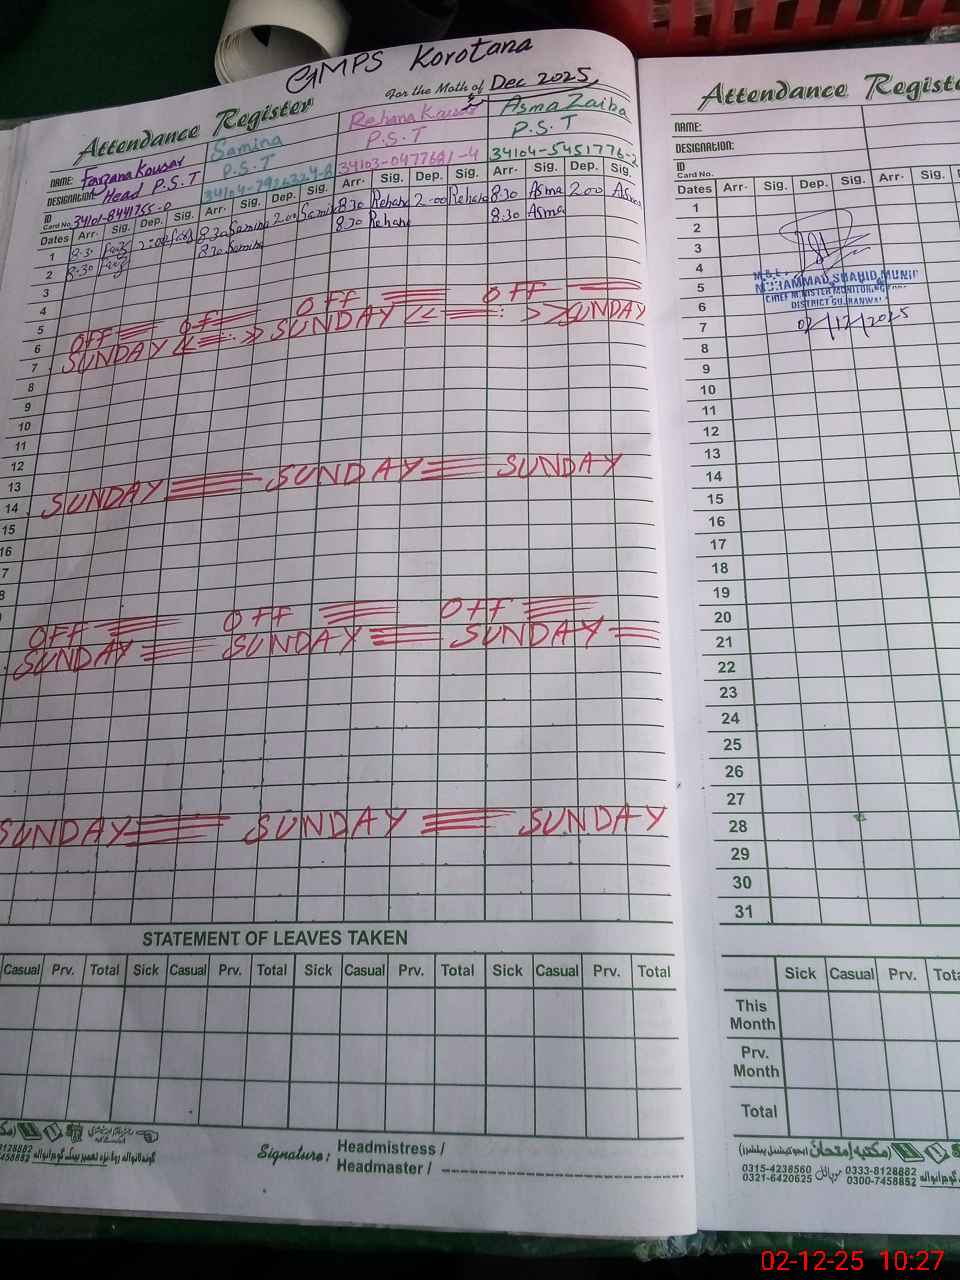 GMPS Korotana
Attendance Register
For the Moth of Dec 2025
NAME: Farzana Kousar
Samina
Rehana Kausar
Asma Zaiba
DESIGNATION: Head P.S.T
P.S.T
P.S.T
P.S.T
ID Card No. 34101-8441755-0
34103-0477681-4
34104-5451776-2
Dates Arr. Sig. Dep. Sig. Arr. Sig. Dep. Sig. Arr. Sig. Dep. Sig. Arr. Sig. Dep. Sig.
1 8:30 2:00 8:30 Samina 2:00 Samina 8:30 Rehana 2:00 Rehana 8:30 Asma 2:00 Asma
2 8:30 8:30 Samina 8:30 Rehana 8:30 Asma
3
4
5
6 OFF OFF OFF OFF
7 SUNDAY SUNDAY SUNDAY
8
9
10
11
12
13
14 SUNDAY SUNDAY SUNDAY
15
16
7
8
OFF OFF OFF
SUNDAY SUNDAY SUNDAY
SUNDAY SUNDAY SUNDAY
STATEMENT OF LEAVES TAKEN
Casual Prv. Total Sick Casual Prv. Total Sick Casual Prv. Total Sick Casual Prv. Total
Signature: Headmistress /
Headmaster /
Attendance Registe
NAME:
DESIGNATION:
ID Card No.
Dates Arr. Sig. Dep. Sig. Arr. Sig.
1
2
3
4
5
6
7
8
9
10
11
12
13
14
15
16
17
18
19
20
21
22
23
24
25
26
27
28
29
30
31
MUHAMMAD SHAHID MUNIR
CHIEF MINISTER MONITORING
DISTRICT GUJRANWALA
02/12/2025
Sick Casual Prv. Tota
This Month
Prv. Month
Total
0315-4238560 0333-8128882
0321-6420625 0300-7458852
02-12-25 10:27